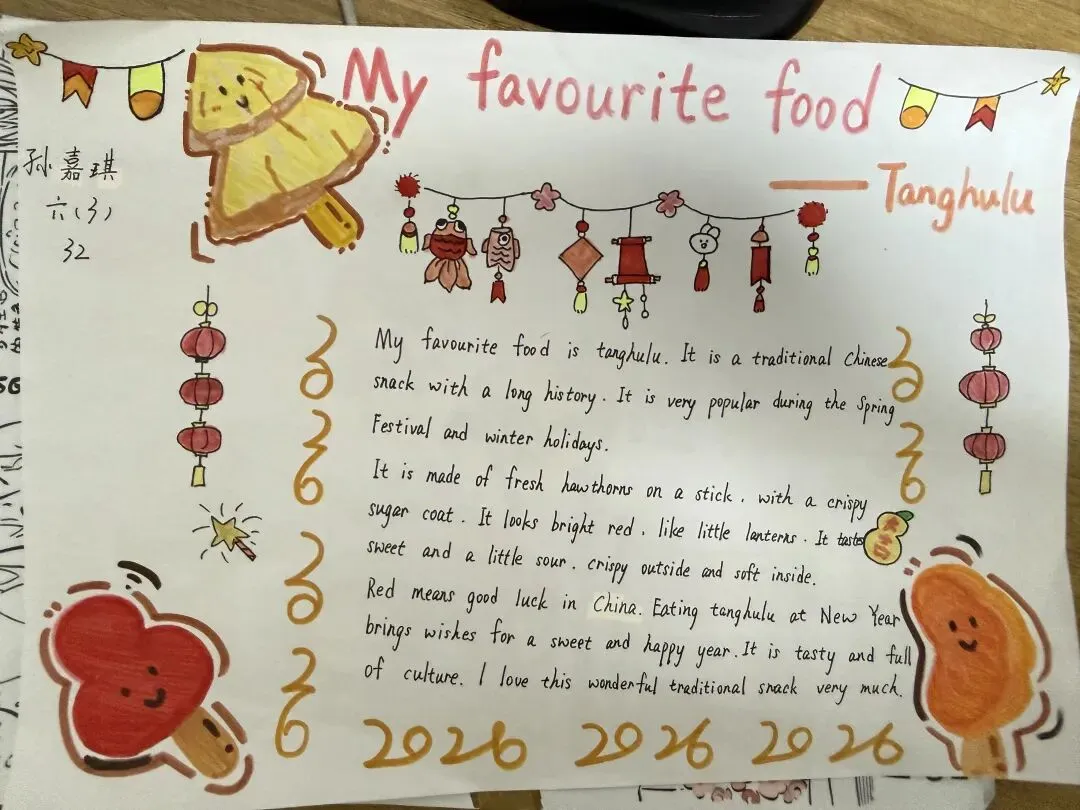 My favourite food
—— Tanghulu
孙嘉琪
六(3)
32
My favourite food is tanghulu. It is a traditional Chinese
snack with a long history. It is very popular during the Spring
Festival and winter holidays.
It is made of fresh hawthorns on a stick, with a crispy
sugar coat. It looks bright red, like little lanterns. It tastes
sweet and a little sour, crispy outside and soft inside.
Red means good luck in China. Eating tanghulu at New Year
brings wishes for a sweet and happy year. It is tasty and full
of culture. I love this wonderful traditional snack very much.
2026
2026
2026
大吉
2026 2026 2026